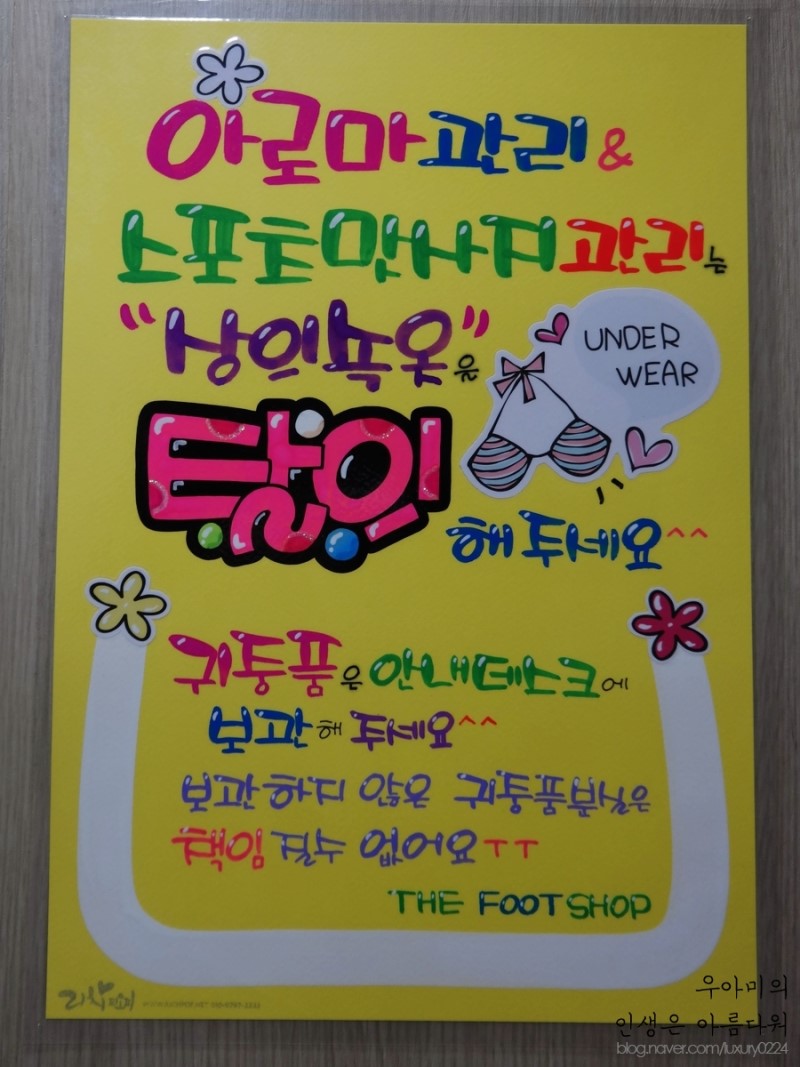 아로마관리 &
스포츠맛사지관리는
"상의속옷"은
UNDER
WEAR
탈의
해주세요^^
귀중품은 안내데스크에
보관해 주세요^^
보관하지 않은 귀중품분실은
책임질수 없어요ㅜㅜ
THE FOOT SHOP
우아미의
인생은 아름다워
blog.naver.com/luxury0224